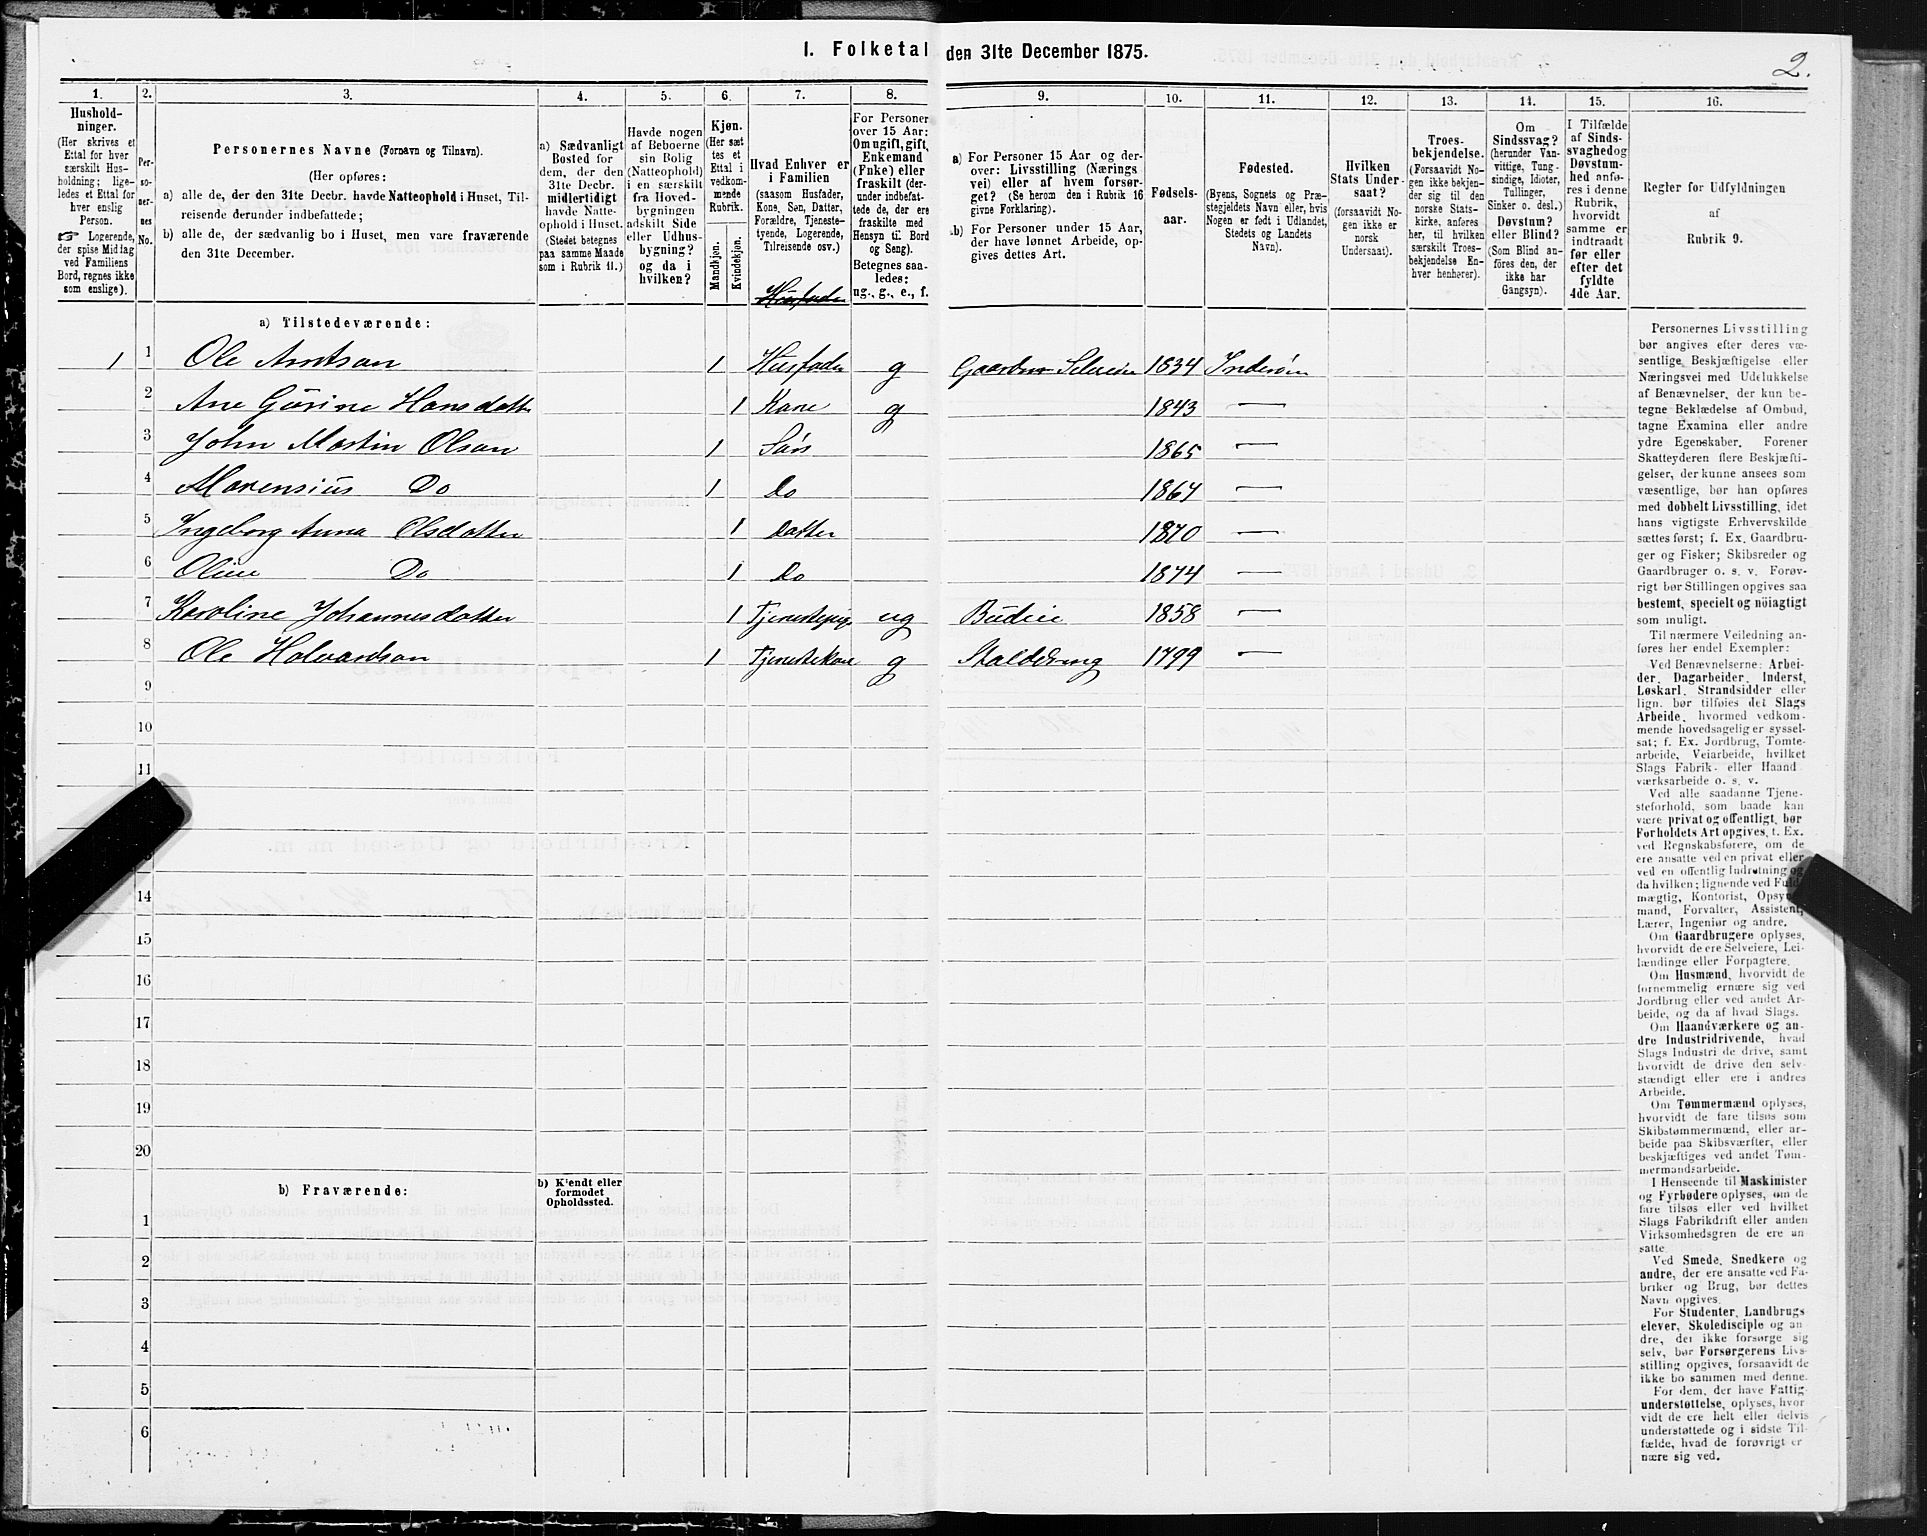 I. Folketal den 31te December 1875.
2.
1.
Hushold-
ninger.
(Her skrives et
Ettal for hver
særskilt Hus-
holdning; lige-
ledes et Ettal for
hver enslig
Person.
☞ Logerende,
der spise Middag
ved Familiens
Bord, regnes ikke
som enslige).
2.
Per-
so-
ner-
nes
No.
3.
Personernes Navne (Fornavn og Tilnavn).
(Her opføres:
a) alle de, der den 31te Decbr. havde Natteophold i Huset, Til-
reisende derunder indbefattede;
b) alle de, der sædvanlig bo i Huset, men vare fraværende
den 31te December.
4.
a) Sædvanligt
Bosted for
dem, der den
31te Decbr.
midlertidigt
havde Natte-
ophold i Huset.
(Stedet betegnes
paa samme Maade
som i Rubrik 11.)
5.
Havde nogen
af Beboerne
sin Bolig
(Natteophold)
i en særskilt
fra Hoved-
bygningen
adskilt Side
eller Udhus-
bygning?
og da i
hvilken?
6.
Kjøn.
(Her sæt
tes et
Ettal i
vedkom-
mende
Rubrik.
Mandkjøn.
Kvindekjøn.
7.
Hvad Enhver er
i Familien
(saasom Husfader,
Kone, Søn, Datter,
Forældre, Tjeneste-
tyende, Logerende,
Tilreisende osv.)
Husfader
8.
For Personer
over 15 Aar:
Om ugift, gift,
Enkemand
(Enke) eller
fraskilt (der-
under indbefat-
tede de, der ere
fraskilte med
Hensyn til Bord
og Seng).
Betegnes saa-
ledes:
ug., g., e., f.
9.
a) For Personer 15 Aar og der-
over: Livsstilling (Nærings
vei) eller af hvem forsør-
get? (Se herom den i Rubrik 16
givne Forklaring).
b) For Personer under 15 Aar,
der have lønnet Arbeide, op-
gives dettes Art.
10.
Fødsels-
aar.
11.
Fødested.
(Byens, Sognets og Præ-
stegjeldets Navn eller, hvis
Nogen er født i Udlandet,
Stedets og Landets
Navn).
12.
Hvilken
Stats Under
saat?
(forsaavidt No-
gen ikke er
norsk
Undersaat).
13.
Troes-
bekjendelse.
(Forsaavidt No-
gen ikke bekjen-
der sig til den
norske Stats-
kirke, anføres
her, til hvilken
særskilt Troes-
bekjendelse En-
hver henhører).
14.
Om
Sindssvag?
(herunder Van-
vittige, Tung-
sindige, Idioter,
Tullinger,
Sinker o. desl.)
Døvstum?
eller Blind?
(Som Blind an-
føres den, der
ikke har
Gangsyn).
15.
I Tilfælde
af Sinds-
svaghed og
Døvstum-
hed anfø-
res i denne
Rubrik,
hvorvidt
samme er
indtraadt
før eller
efter det
fyldte
4de Aar.
16.
Regler for Udfyldningen
af
Rubrik 9.
a) Tilstedeværende:
1 1 Ole Arntsan 1 Husfader g Gaardbr Selveier 1834 Inderøen
2 Ane Gurine Hansdatter 1 Kone g 1843 —
3 John Martin Olsan 1 Søn 1865 —
4 Marensius Do 1 Do 1867 —
5 Ingeborg Anna Olsdatter 1 Datter 1870 —
6 Oline Do 1 Do 1874 —
7 Karoline Johannesdatter 1 Tjenestepige ug Budeie 1858 —
8 Ole Halvardsan 1 g 1799 —
9
10
11
14
15
16
17
18
19
20
b) Fraværende:
b) Kjendt eller
formodet
Opholdssted.
1
2
3
4
5
6
Personernes Livsstilling
bør angives efter deres væ-
sentlige Beskjæftigelse eller
Næringsvei med Udelukkelse
af Benævnelser, der kun be-
tegne Beklædelse af Ombud,
tagne Examina eller andre
ydre Egenskaber. Forener
Skatteyderen flere Beskjæfti-
gelser, der kunne ansees som
væsentlige, bør han opføres
med dobbelt Livsstilling, idet
hans vigtigste Erhvervskilde
sættes først; f. Ex. Gaardbru-
ger og Fisker; Skibsreder og
Gaardbruger o. s. v. Forøv-
rigt bør Stillingen opgives saa
bestemt, specielt og nöiagtigt
som muligt.
Til nærmere Veiledning an-
føres her endel Exempler:
Ved Benævnelserne: Arbei-
der, Dagarbeider, Inderst,
Løskarl, Strandsidder eller
lign. bør tilføies det Slags
Arbeide, hvormed vedkom-
mende hovedsagelig er syssel-
sat; f. Ex. Jordbrug, Tomte-
arbeide, Veiarbeide, hvilket
Slags Fabrik- eller Haand
værksarbeide o. s. v.
Ved alle saadanne Tjene-
steforhold, som baade kan
være privat og offentligt, bør
Forholdets Art opgives, t. Ex.
ved Regnskabsførere, om de
ere ansatte ved en privat eller
ved en offentlig Indretning og
da hvilken; lignende ved Fuld-
mægtig, Kontorist, Opsyns-
mand, Forvalter, Assistent,
Lærer, Ingeniør og andre.
Om Gaardbrugere oplyses,
hvorvidt de ere Selveiere, Lei-
lændinge eller Forpagtere.
Om Husmænd, hvorvidt de
fornemmelig ernære sig ved
Jordbrug eller ved andet Ar-
beide, og da af hvad Slags.
Om Haandværkere og an-
dre Industridrivende, hvad
Slags Industri de drive, samt
hvorvidt de drive den selv-
stændigt eller ere i andres
Arbeide.
Om Tømmermænd oplyses,
hvorvidt de fare tilsøs som
Skibstømmermænd, eller ar-
beide paa Skibsværfter, eller
beskjæftiges ved andet Tøm-
mermandsarbeide.
I Henseende til Maskinister
og Fyrbødere oplyses, om de
fare tilsøs eller ved hvilket
Slags Fabrikdrift eller anden
Virksomhedsgren de ere an
satte
Ved Smede, Snedkere og
andre, der ere ansatte ved Fa-
briker og Brug, bør dettes
Navn opgives.
For Studenter, Landbrugs
elever, Skoledisciple og an
dre, der ikke forsørge sig
selv, bør Forsørgerens Livs-
stilling opgives, forsaavidt de
ikke bo sammen med denne.
For dem, der have Fattig-
understøttelse, oplyses, hvor
vidt de ere helt eller delvis
understøttede og i sidste Til-
fælde, hvad de forøvrigt er
nære sig ved.